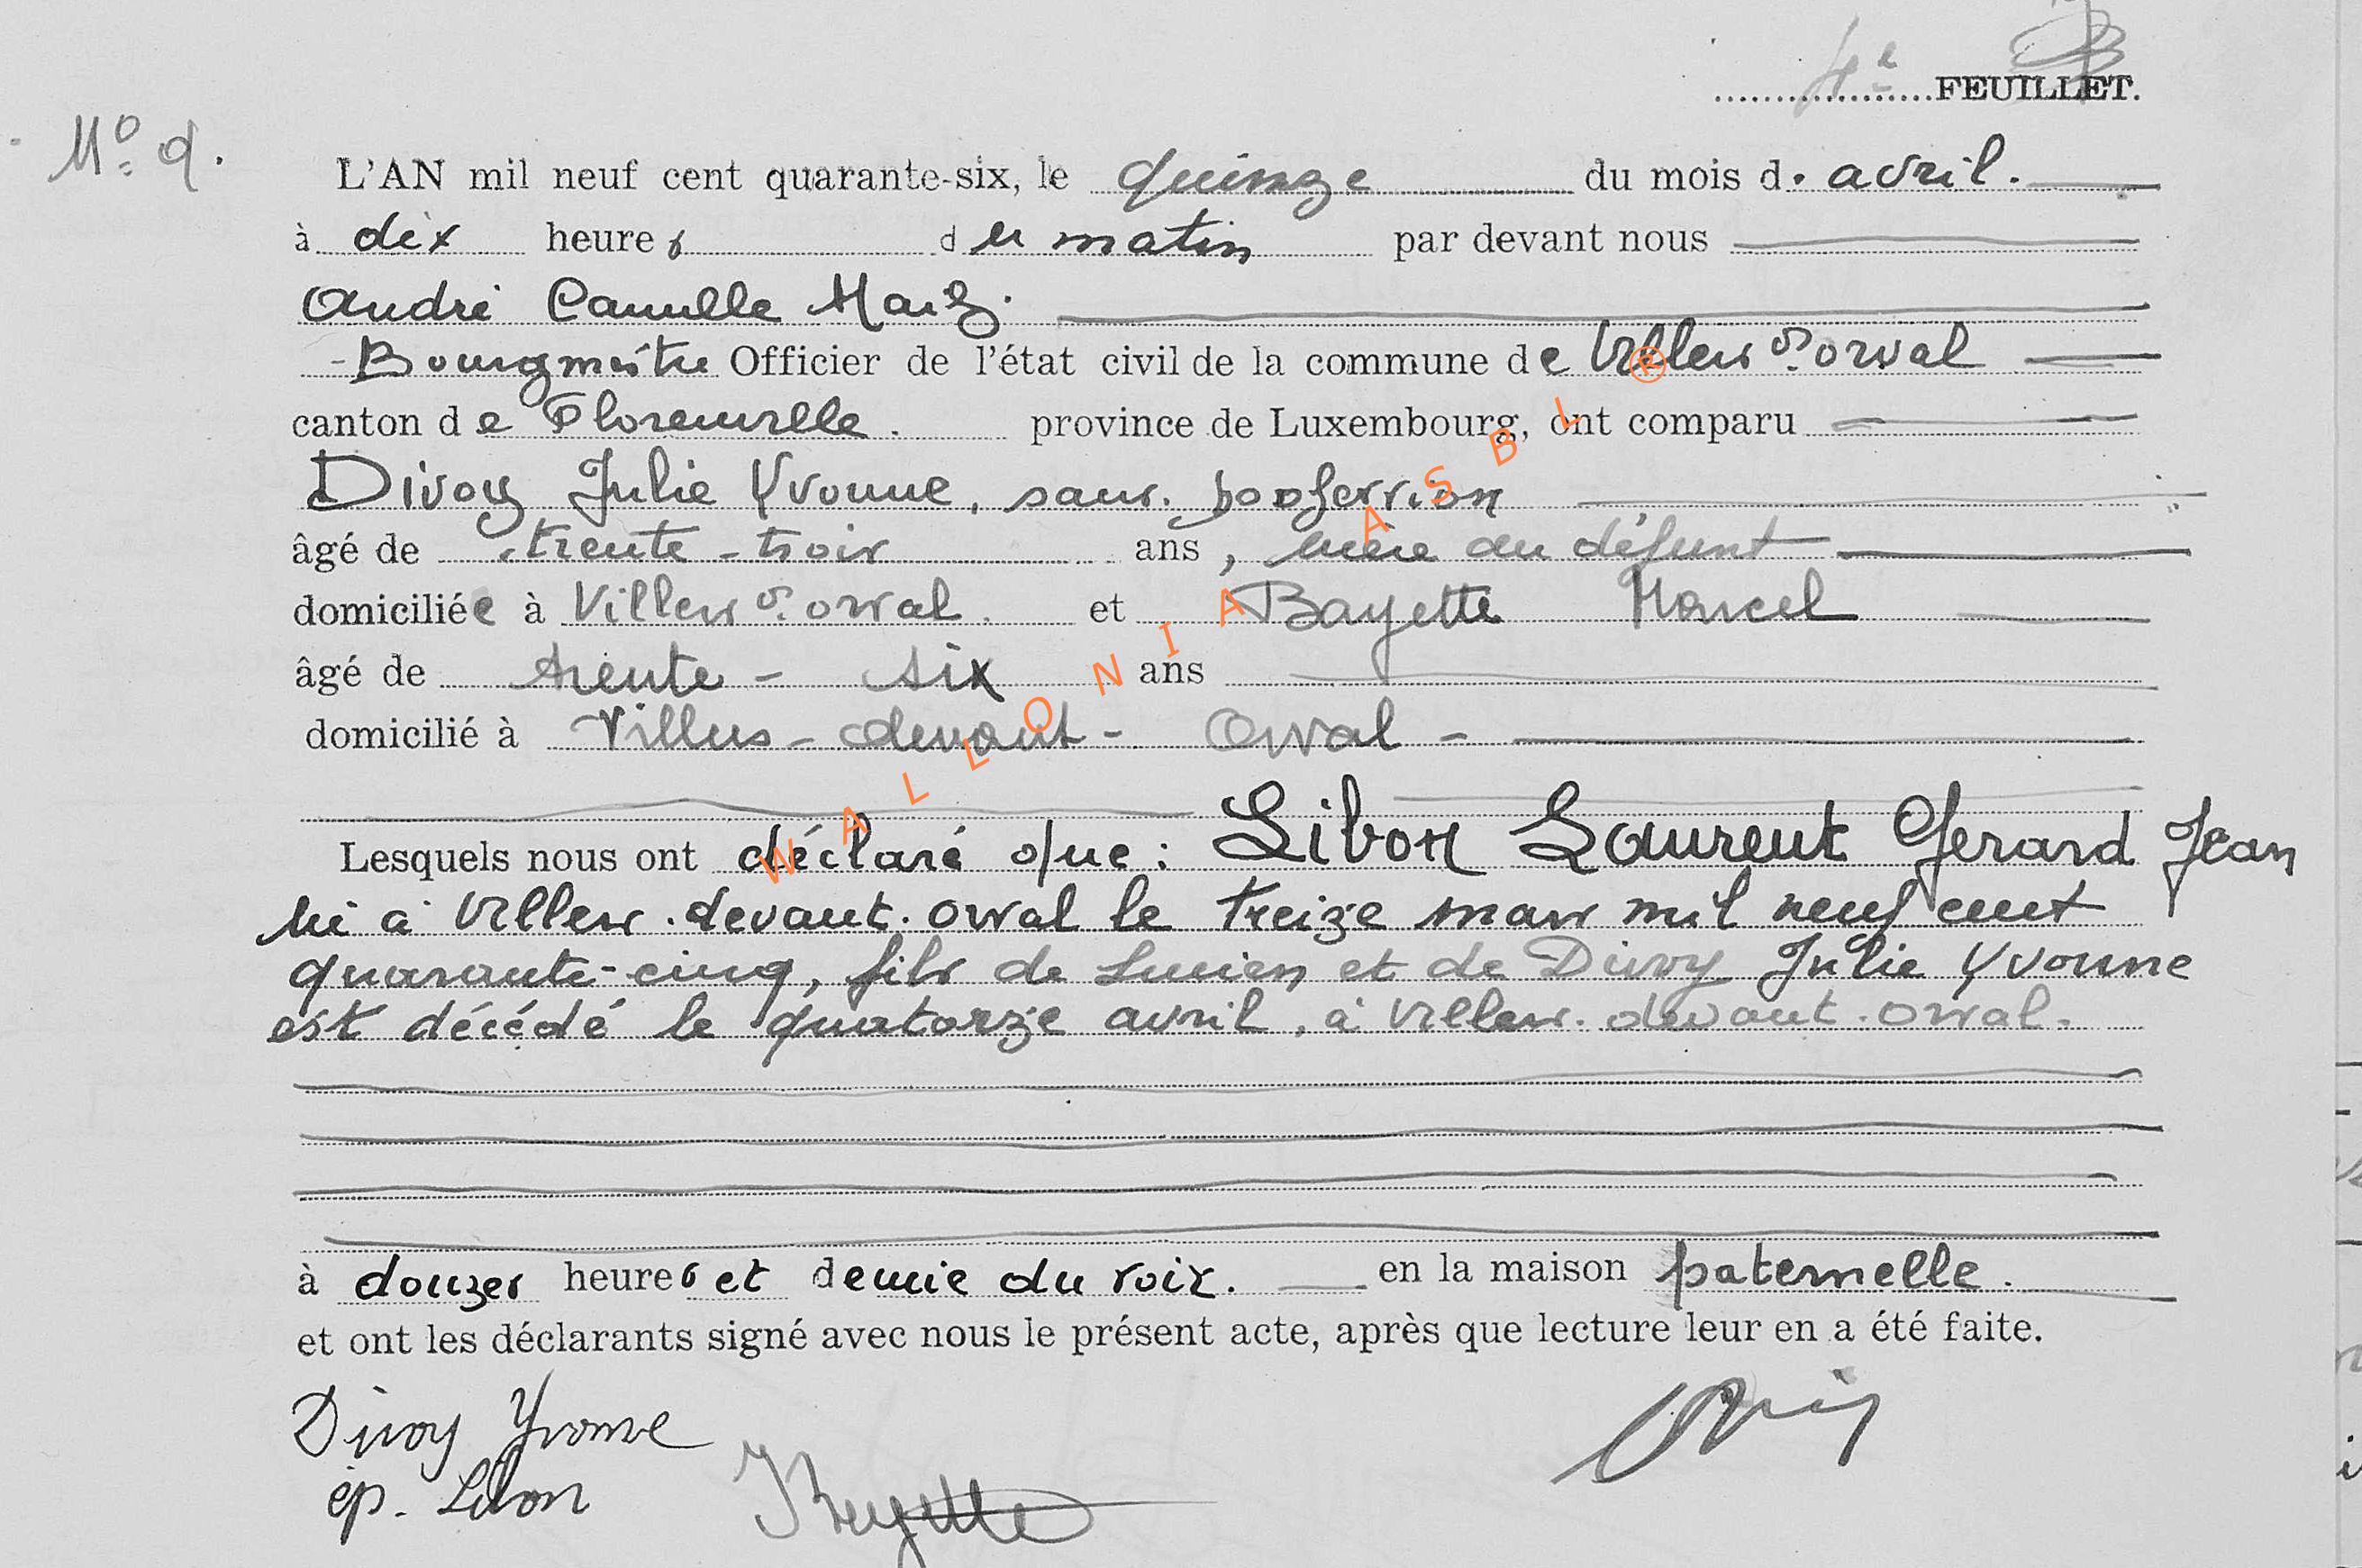 4e FEUILLET.
N° 9.
L'AN mil neuf cent quarante-six, le quinze du mois d. avril.
à dix heures du matin par devant nous
André Camille
Bourgmestre Officier de l'état civil de la commune de Villers d. orval
canton de Florenville. province de Luxembourg, ont comparu
Divoy Julie Yvonne, sans. profession
âgé de trente-trois ans, mère du défunt
domiciliée à Villers d. orval. et Bayette Marcel
âgé de trente-six ans
domicilié à Villers-devant-Orval-
Lesquels nous ont déclaré que: Libon Laurent Gerard Jean
né à Villers.devant.orval le treize mars mil neuf cent
quarante-cinq, fils de Lucien et de Divoy Julie Yvonne
est décédé le quatorze avril, à Villers.devant.orval.
à douzes heures et demie du soir. en la maison paternelle.
et ont les déclarants signé avec nous le présent acte, après que lecture leur en a été faite.
Divoy Yvonne
ép. Libon
WALLONIA ASBL ®